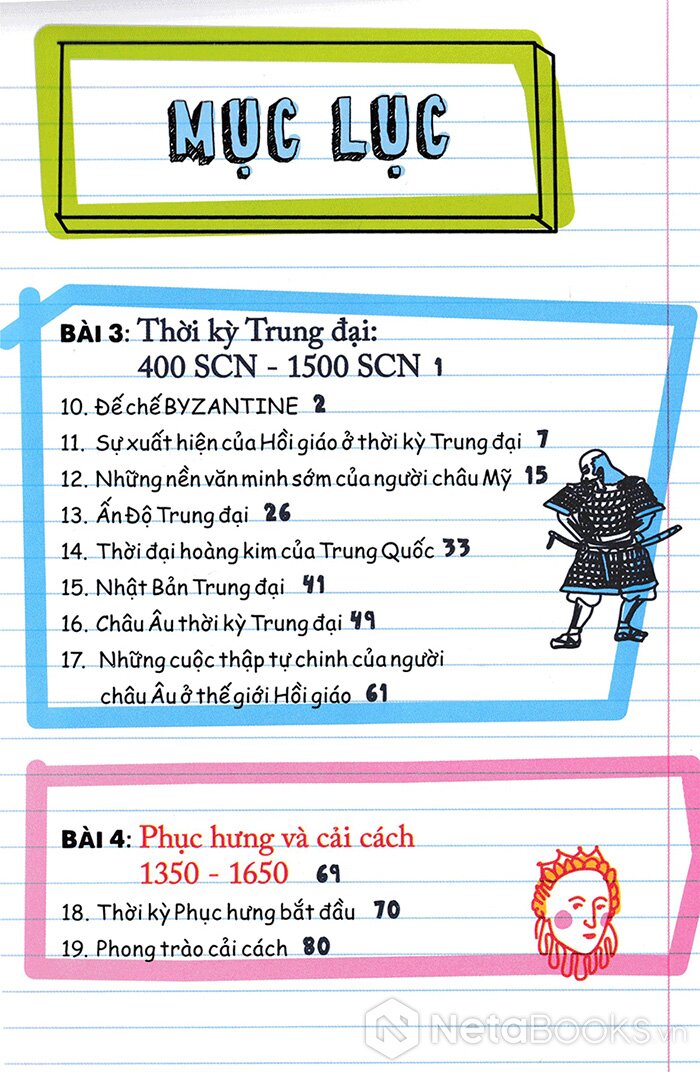 MỤC LỤC
BÀI 3: Thời kỳ Trung đại:
400 SCN - 1500 SCN 1
10. Đế chế BYZANTINE 2
11. Sự xuất hiện của Hồi giáo ở thời kỳ Trung đại 7
12. Những nền văn minh sớm của người châu Mỹ 15
13. Ấn Độ Trung đại 26
14. Thời đại hoàng kim của Trung Quốc 33
15. Nhật Bản Trung đại 41
16. Châu Âu thời kỳ Trung đại 49
17. Những cuộc thập tự chinh của người
châu Âu ở thế giới Hồi giáo 61
BÀI 4: Phục hưng và cải cách
1350 - 1650 69
18. Thời kỳ Phục hưng bắt đầu 70
19. Phong trào cải cách 80
NetaBooks.vn